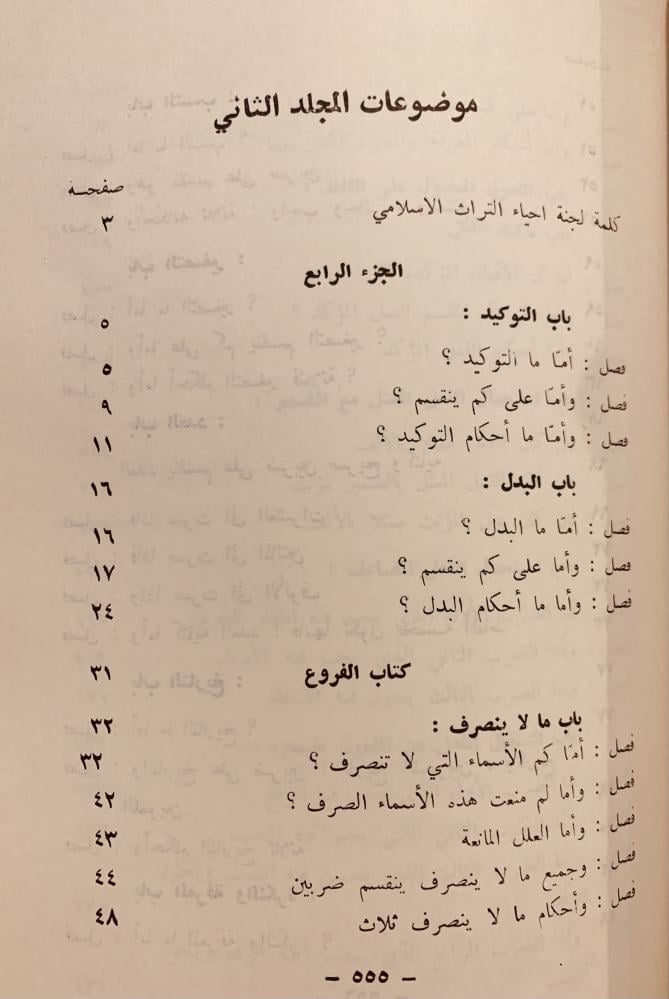 موضوعات المجلد الثاني
صفحة
كلمة لجنة احياء التراث الاسلامي ٣
الجزء الرابع
باب التوكيد : ٥
فصل : أمّا ما التوكيد ؟ ٥
فصل : وأمّا على كم ينقسم ؟ ٩
فصل : وأمّا ما أحكام التوكيد ؟ ١١
باب البدل : ١٦
فصل : أمّا ما البدل ؟ ١٦
فصل : وأما على كم ينقسم ؟ ١٧
فصل : وأما ما أحكام البدل ؟ ٢٤
كتاب الفروع ٣١
باب ما لا ينصرف : ٣٢
فصل : أمّا كم الأسماء التي لا تنصرف ؟ ٣٢
فصل : وأما لم منعت هذه الأسماء الصرف ؟ ٤٢
فصل : وأما العلل المانعة ٤٣
فصل : وجميع ما لا ينصرف ينقسم ضربين ٤٤
فصل : وأحكام ما لا ينصرف ثلاث ٤٨
– ٥٥٥ –